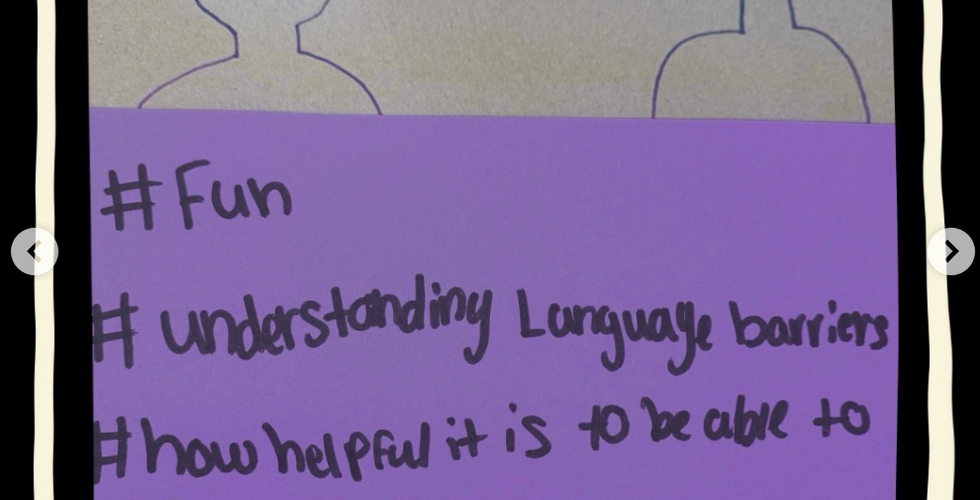 #Fun
# understanding Language barriers
#how helpful it is to be able to